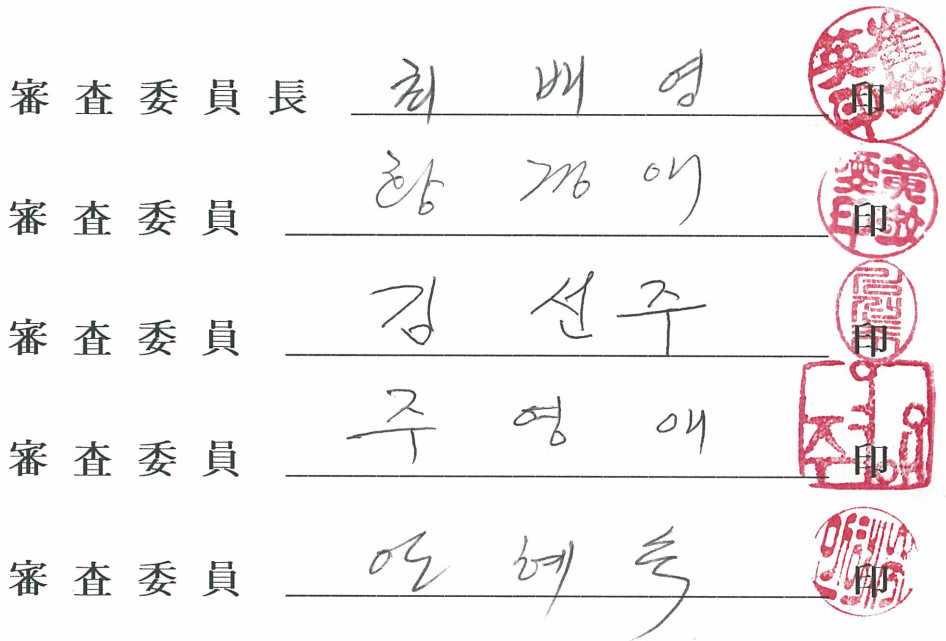 審査委員長 최배영 印
審査委員 황경애 印
審査委員 김선주 印
審査委員 주영애 印
審査委員 혜숙 印